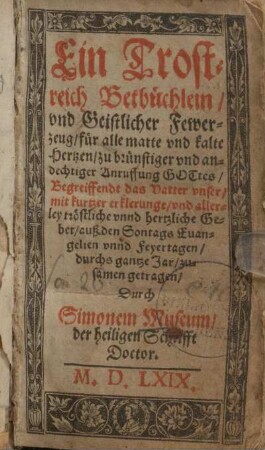 Ein Trost-
reich Betbüchlein/
vnd Geistlicher Fewer-
zeug/für alle matte vnd kalte
Hertzen/zu brünstiger vnd an-
dechtiger Anruffung GOttes/
Begreiffendt das Vatter vnser/
mit kurtzer erklerunge/vnd aller-
ley tröstliche vnnd hertzliche Ge-
bet/außden Sontags Euan-
gelien vnnd Feyertagen/
durchs gantze Jar/zu-
samen getragen/
Durch
Simonem Museum/
der heiligen Schrifft
Doctor.
M. D. LXIX.